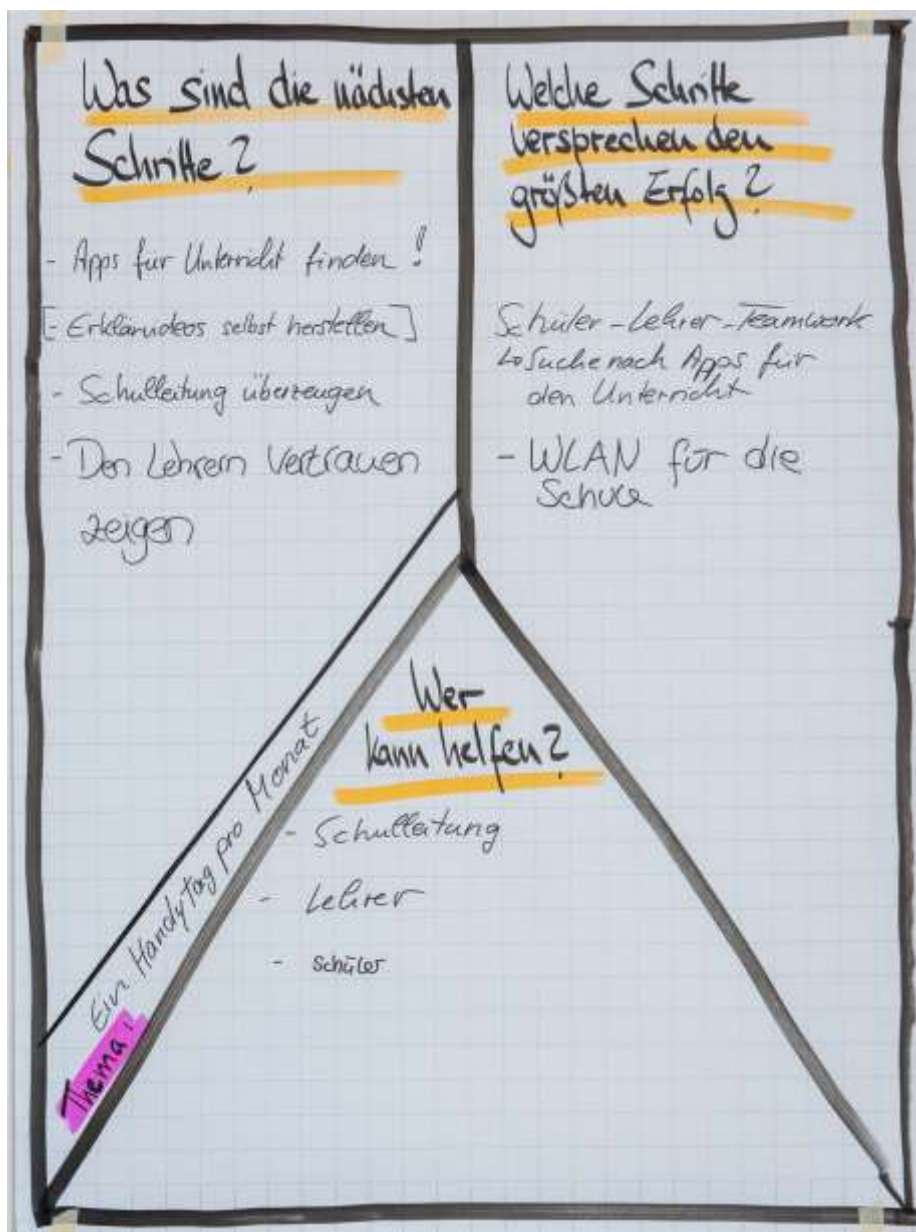 Was sind die nächsten
Schritte?
- Apps für Unterricht finden!
[- Erklärvideos selbst herstellen]
- Schulleitung überzeugen
- Den Lehrern Vertrauen
zeigen
Welche Schritte
versprechen den
größten Erfolg?
Schüler-Lehrer-Teamwork
↳ Suche nach Apps für
den Unterricht
- WLAN für die
Schule
Wer
kann helfen?
- Schulleitung
- Lehrer
- Schüler
Thema:
Ein Handytag pro Monat